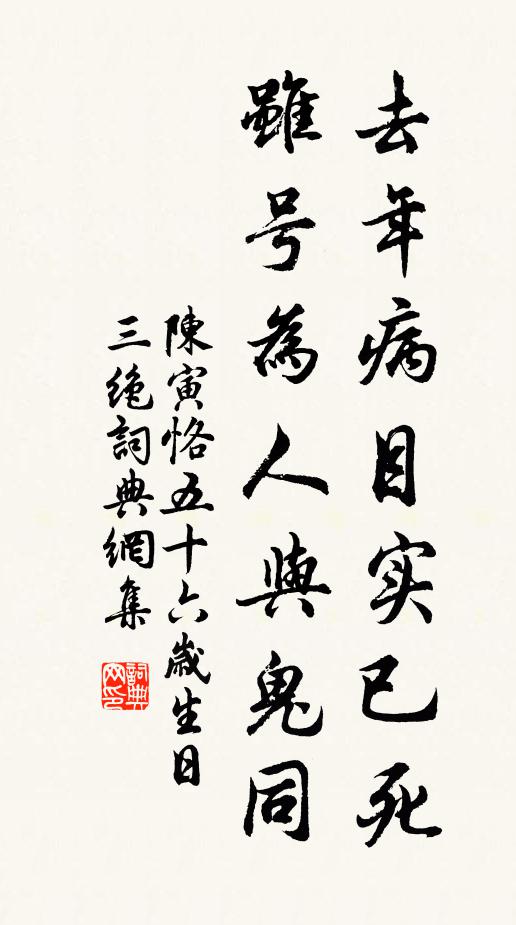 去年病目实已死
雖号為人與鬼同
陳寅恪五十六歲生日
三絶詞典網集
詞典
网印